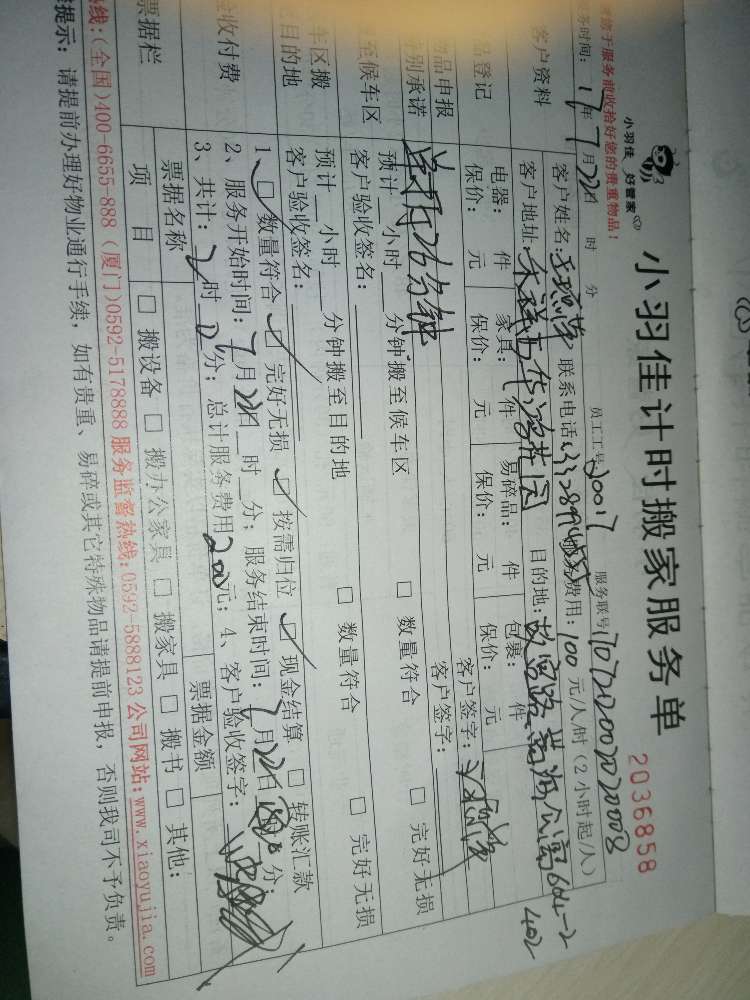 小羽佳 好管家
小羽佳计时搬家服务单
2036858
请您于服务前收拾好您的贵重物品!
务时间: 17年 7月22日 时 分 员工工号 服务联号
客户资料
客户姓名: 联系电话 服务费用: 100 元/人时(2小时起/人)
客户地址: 目的地:
品登记
电器: 件 家具: 件 易碎品: 件 包裹: 件
保价: 元 保价: 元 保价: 元 保价: 元
物品申报 客户签字:
特别承诺 26分钟 客户签字:
至候车区 预计 小时 分钟搬至候车区 □ 数量符合 □ 完好无损
客户验收签名:
车区搬 预计 小时 分钟搬至目的地 □ 数量符合 □ 完好无损
目的地 客户验收签名:
验收付费
1、□ 数量符合 □ 完好无损 □ 按需归位 □ 现金结算 □ 转账汇款
2、服务开始时间: 7月22日 时 分; 服务结束时间: 7月22日 分;
3、共计: 2时 0分; 总计服务费用200元; 4、客户验收签字:
票据栏
票据名称 票据金额
项 目 □ 搬设备 □ 搬办公家具 □ 搬家具 □ 搬书 □ 其他:
热线:(全国)400-6655-888 (厦门)0592-5178888 服务监督热线:0592-5888123 公司网站:www.xiaoyujia.com
提示: 请提前办理好物业通行手续, 如有贵重、易碎或其它特殊物品请提前申报, 否则我司不予负责。